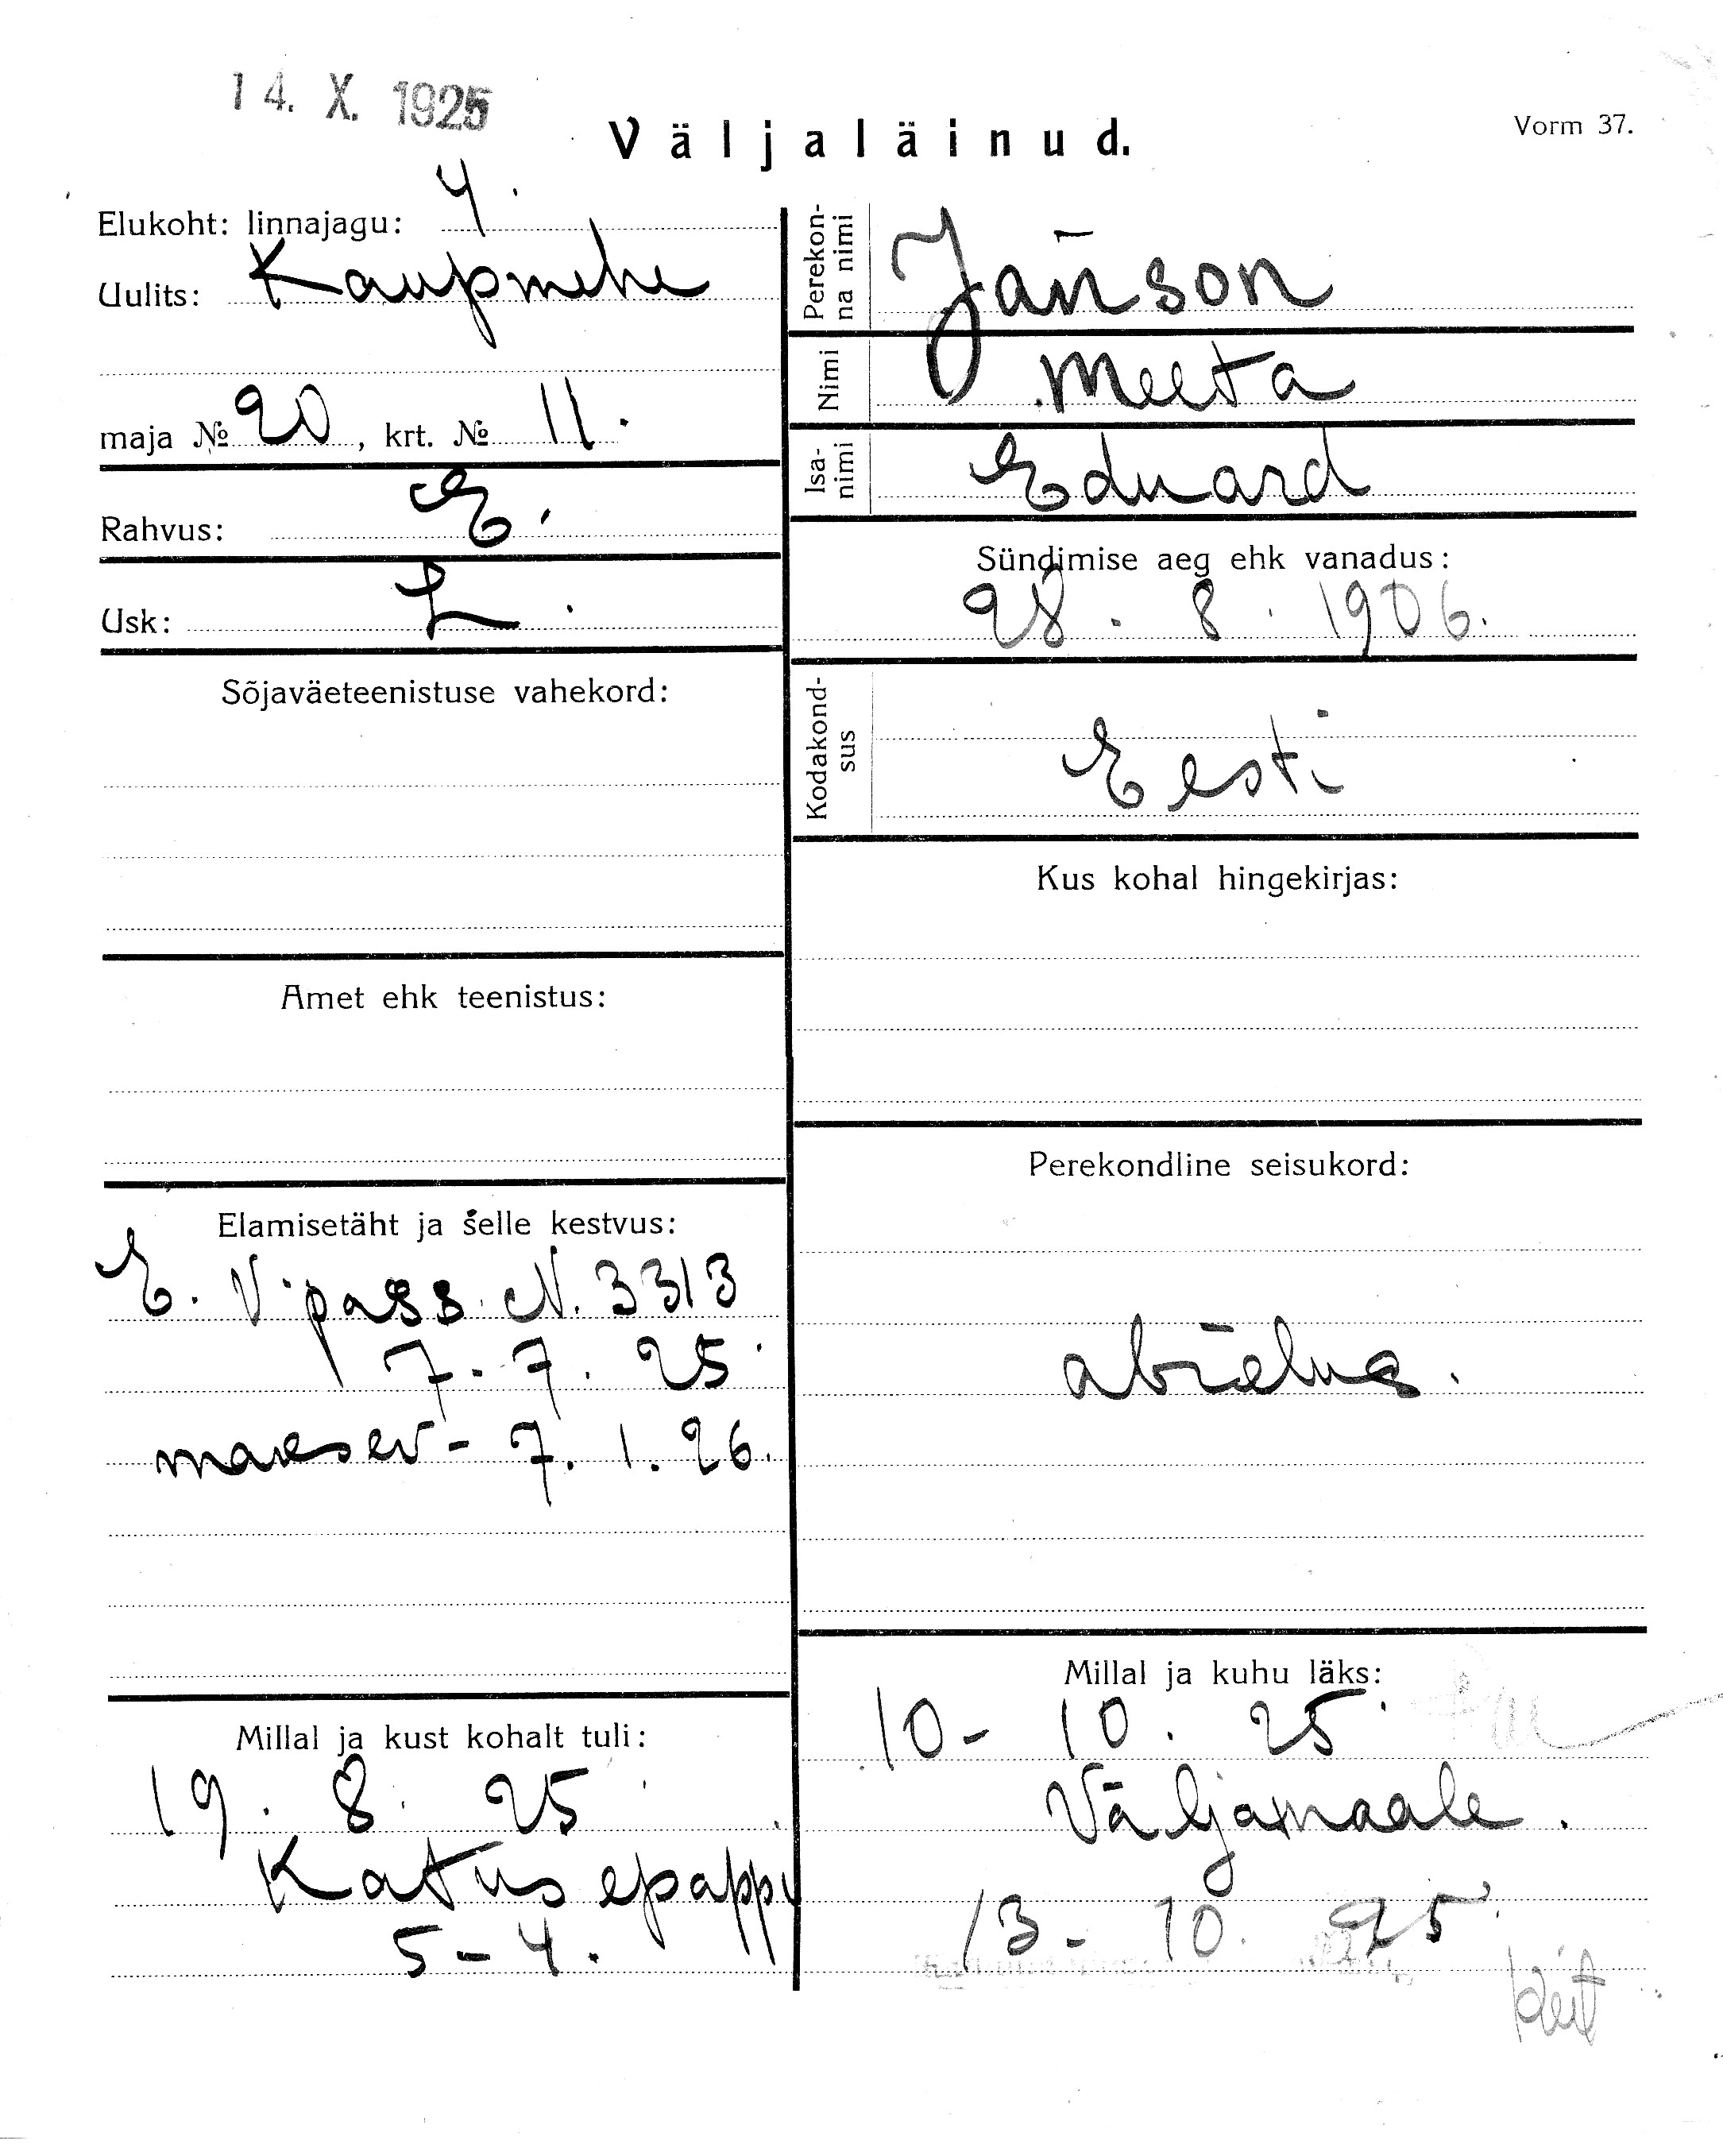 14. X. 1925
Väljaläinud.
Vorm 37.
Elukoht: linnajagu: 4.
Uulits: Kaupmehe
maja № 20, krt. № 11.
Rahvus: E.
Usk: L.
Sõjaväeteenistuse vahekord:
Amet ehk teenistus:
Elamisetäht ja selle kestvus:
E. V. pass. N. 3313
7. 7. 25.
maksev - 7. 1. 26.
Millal ja kust kohalt tuli:
19. 8. 25
Katusepappi
5-4.
Perekon-
na nimi
Jänson
Nimi
Meeta
Isa-
nimi
Eduard
Sündimise aeg ehk vanadus:
28. 8. 1906.
Kodakond-
sus
Eesti
Kus kohal hingekirjas:
Perekondline seisukord:
abielus.
Millal ja kuhu läks:
10-10. 25.
Väljamaale.
13-10. 25.